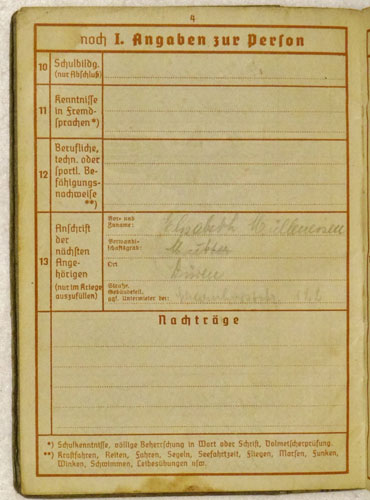 4
noch I. Angaben zur Person
10 Schulbildg.
(nur Abschluß)
11 Kenntnisse
in Fremd-
sprachen *)
12 Berufliche,
techn. oder
sportl. Be-
fähigungs-
nachweise
**)
13 Anschrift
der
nächsten
Ange-
hörigen
(nur im Kriege
auszufüllen)
Vor- und
Zuname: Elisabeth
Verwandt-
schaftsgrad: Mutter
Ort Düren
Straße,
Gebäudeteil,
ggf. Untermieter der:
Nachträge
*) Schulkenntnisse, völlige Beherrschung in Wort oder Schrift, Dolmetscherprüfung.
**) Kraftfahren, Reiten, Fahren, Segeln, Seefahrtzeit, Fliegen, Morsen, Funken,
Winken, Schwimmen, Leibesübungen usw.